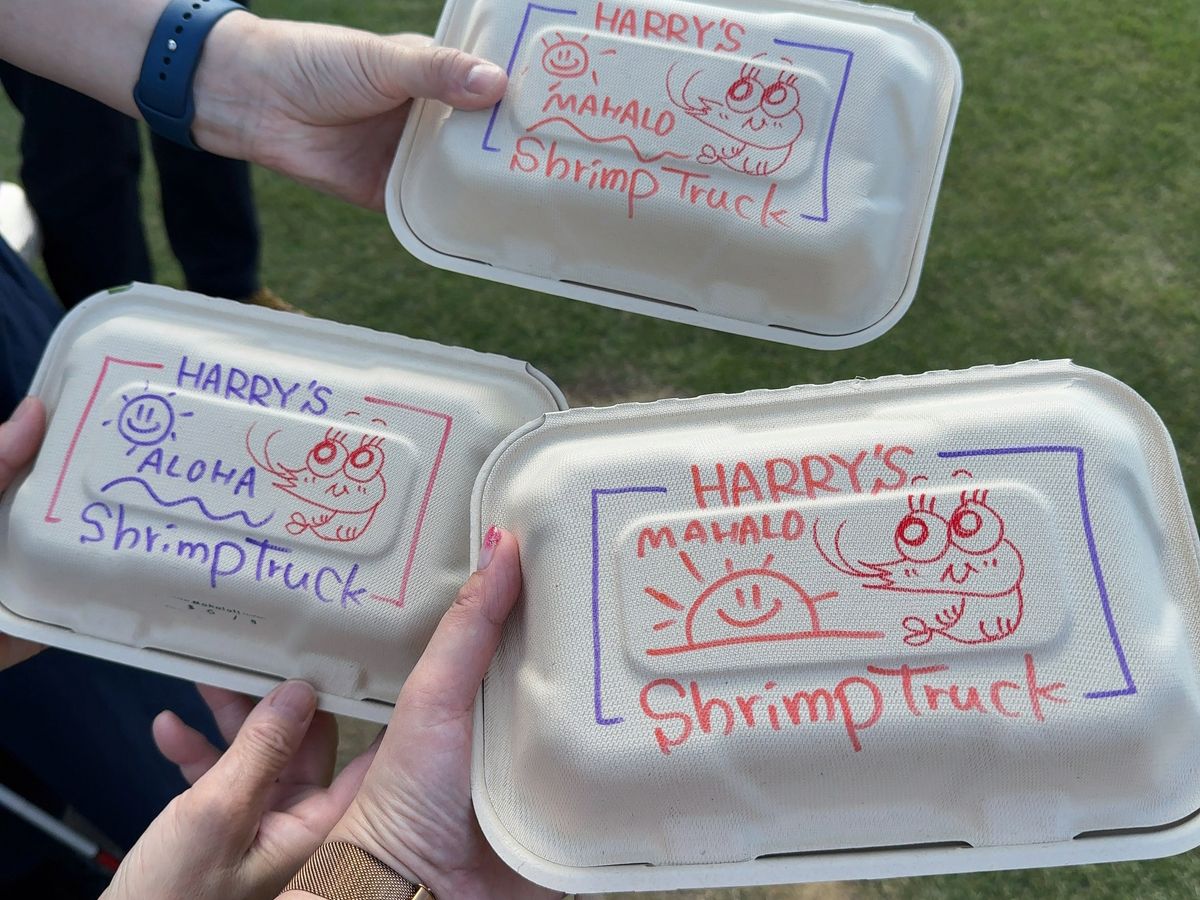 HARRY'S
MAHALO
Shrimp Truck
HARRY'S
ALOHA
Shrimp Truck
HARRY'S
MAHALO
Shrimp Truck